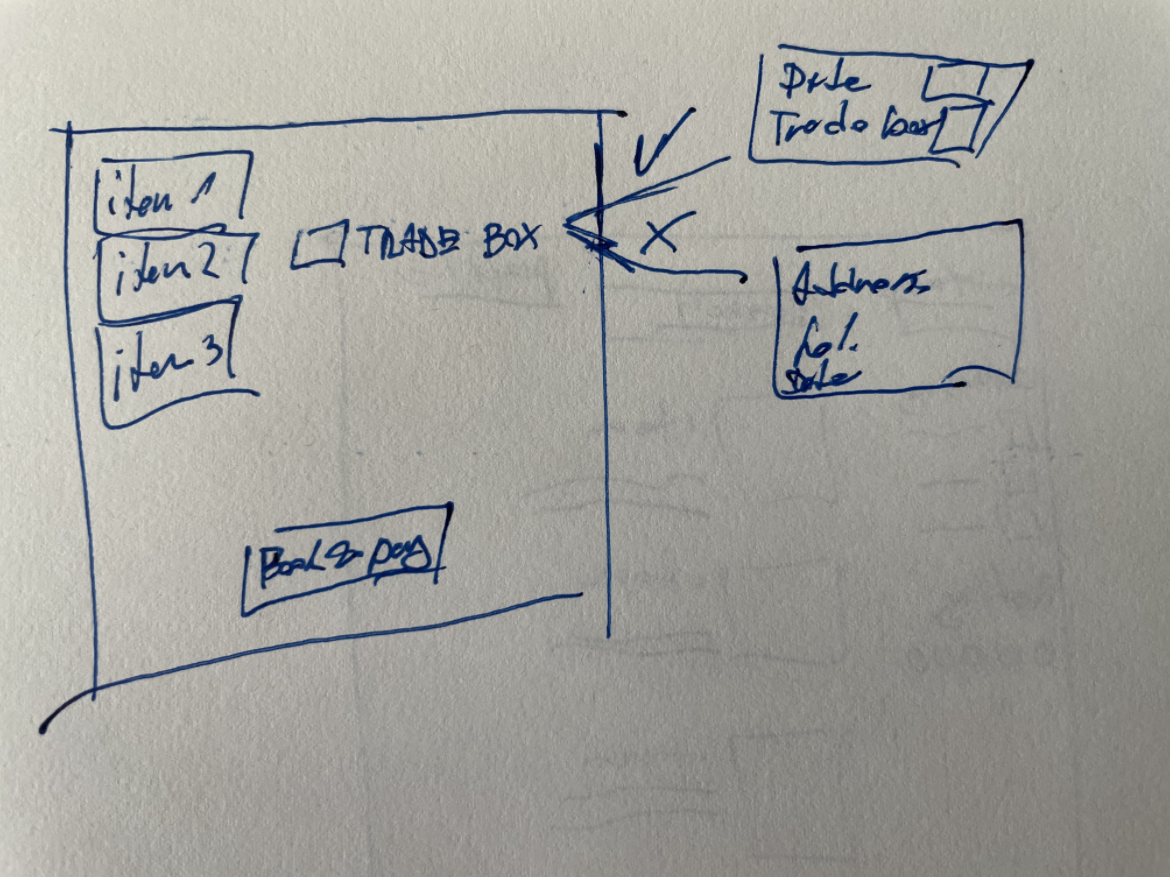 item 1
item 2
item 3
TRADE BOX
Book & pay
Date
Trade box
Address
Date